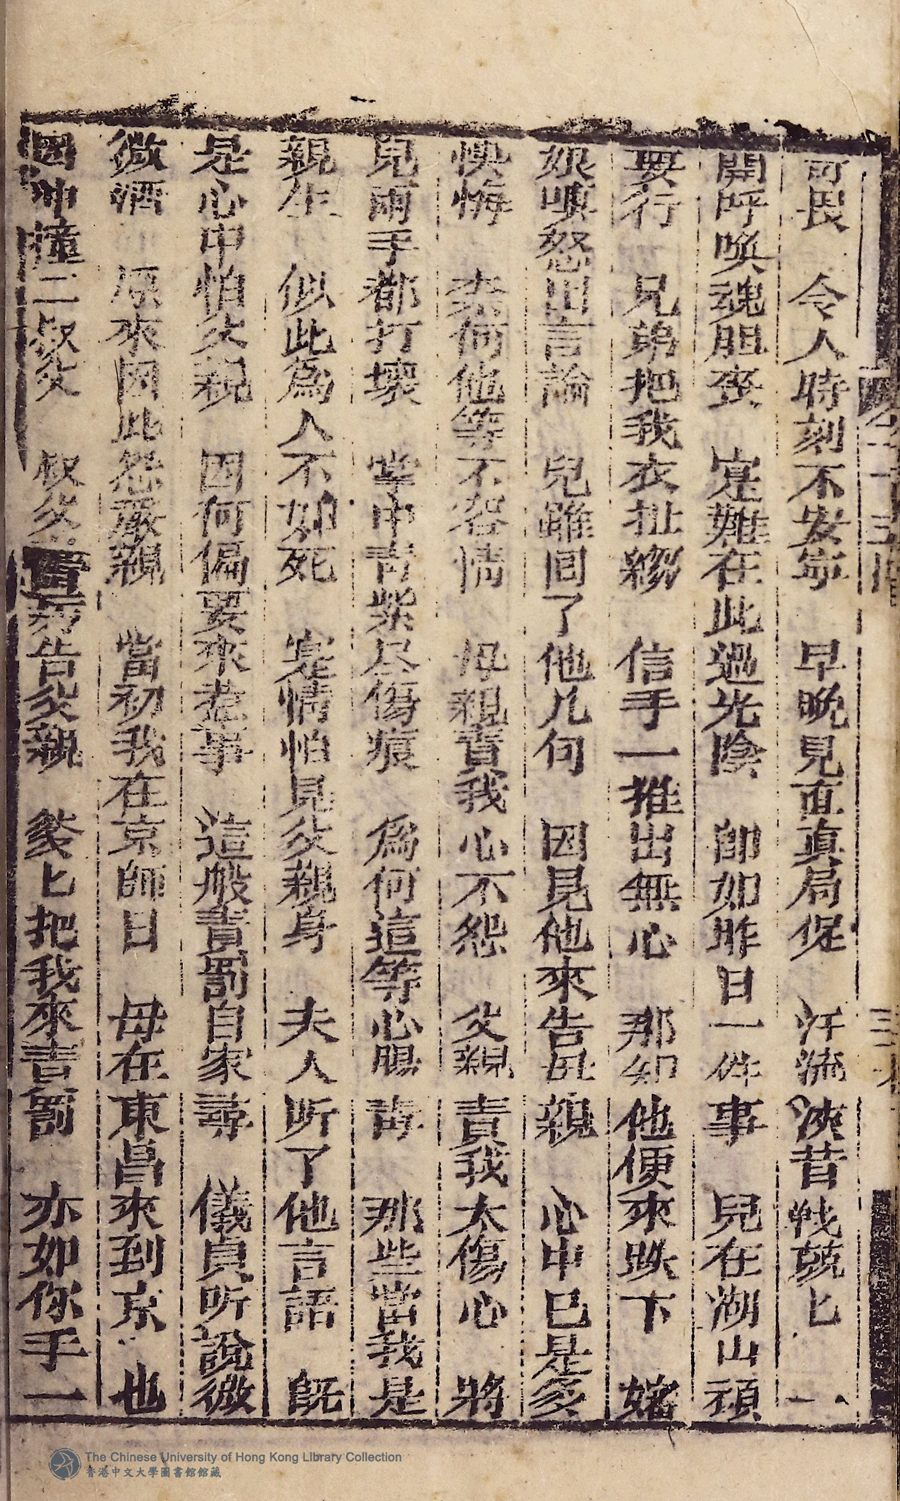 可畏 令人時刻不安寧 早晚見面真局促 汗流浹背戰兢匕 一
開呼喚魂胆丧 寔難在此過光陰 即如昨日一件事 兒在湖山頑
耍行 兄弟把我衣扯綹 信手一推出無心 那知他便來跌下 嬸
娘嗔怒出言論 兒雖囬了他几句 因見他來告母親 心中已是多
快悔 柰何他等不容情 母親責我心不怨 父親責我太傷心 將
兒兩手都打壞 掌中青紫尽傷痕 為何這等心腸毒 那些當我是
親生 似此為人不如死 寔情怕見父親身 夫人听了他言語 既
是心中怕父親 因何偏要來惹事 這般責罰自家尋 儀貞听說微
微洒 原來因此怨嚴親 當初我在京師日 母在東昌來到京 也
因冲撞二叔父 叔父 告父親 匕把我來責罰 亦如你手一
The Chinese University of Hong Kong Library Collection
香港中文大學圖書館館藏